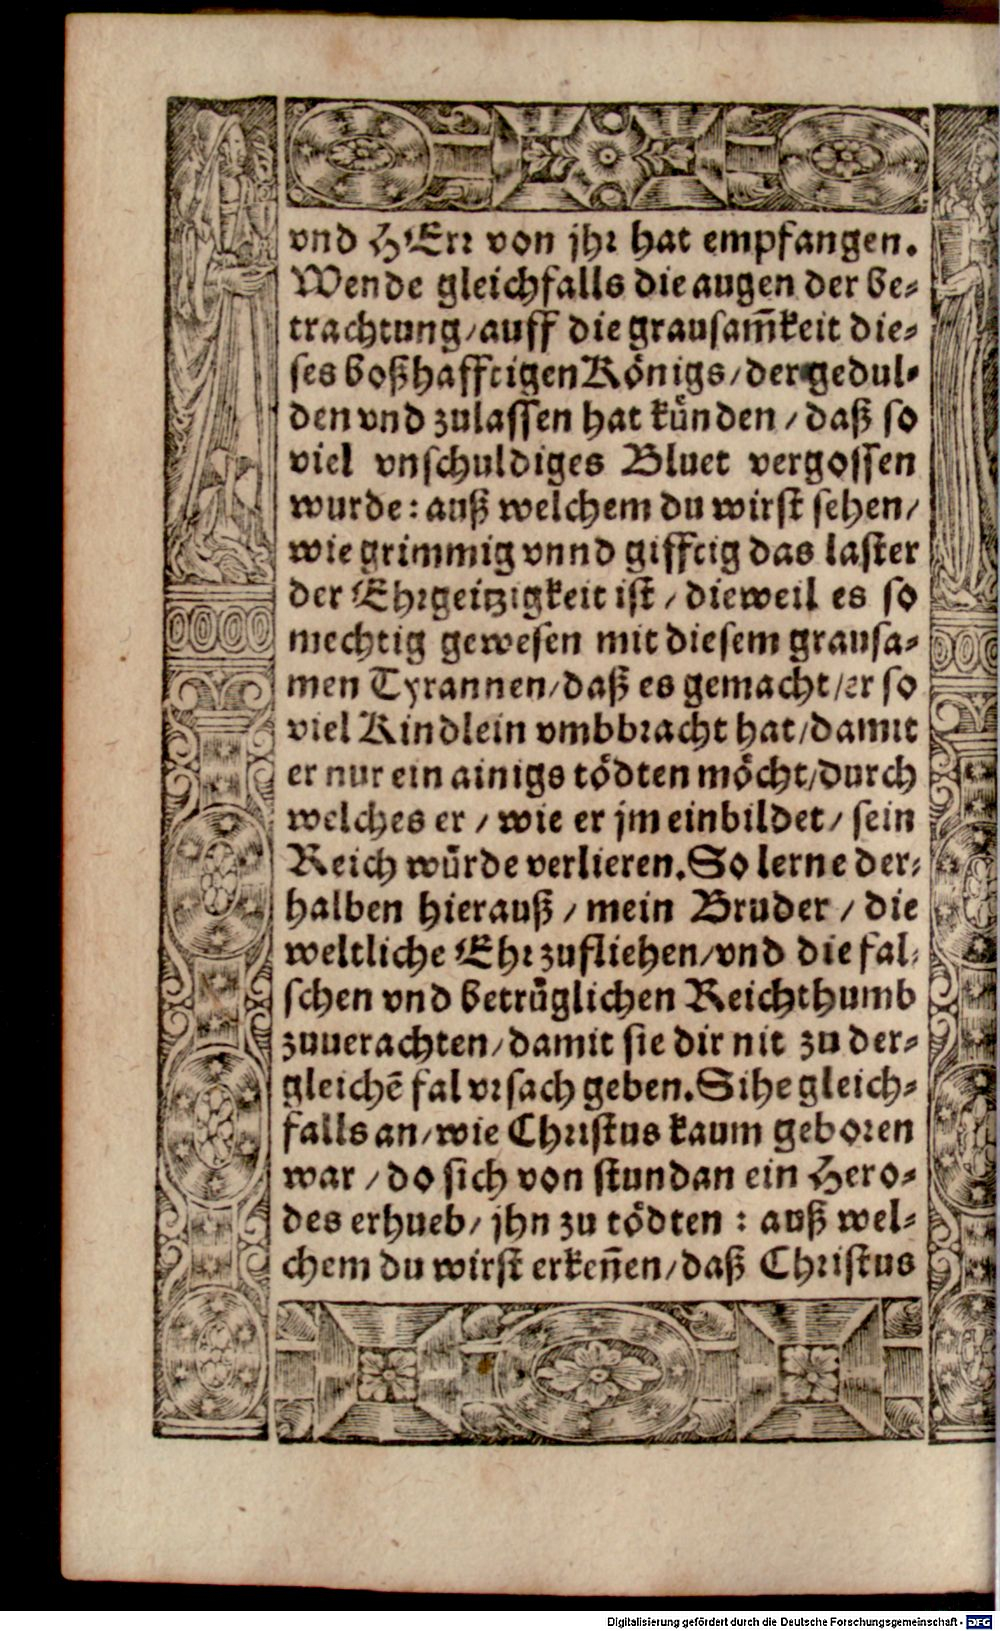 vnd HErr von jhr hat empfangen.
Wende gleichfalls die augen der be-
trachtung/auff die grausam̃keit die-
ses boßhafftigen Königs/der gedul-
den vnd zulassen hat künden/daß so
viel vnschuldiges Bluet vergossen
wurde: auß welchem du wirst sehen/
wie grimmig vnnd gifftig das laster
der Ehrgeitzigkeit ist/dieweil es so
mechtig gewesen mit diesem grausa-
men Tyrannen/daß es gemacht/er so
viel Kindlein vmbbracht hat/damit
er nur ein ainigs tödten möcht/durch
welches er/wie er jm einbildet/sein
Reich würde verlieren. So lerne der-
halben hierauß/mein Bruder/die
weltliche Ehr zufliehen/vnd die fal-
schen vnd betrüglichen Reichthumb
zuuerachten/damit sie dir nit zu der-
gleichē fal vrsach geben. Sihe gleich-
falls an/wie Christus kaum geboren
war/do sich von stundan ein Hero-
des erhueb/jhn zu tödten: auß wel-
chem du wirst erkeñen/daß Christus
Digitalisierung gefördert durch die Deutsche Forschungsgemeinschaft - DFG